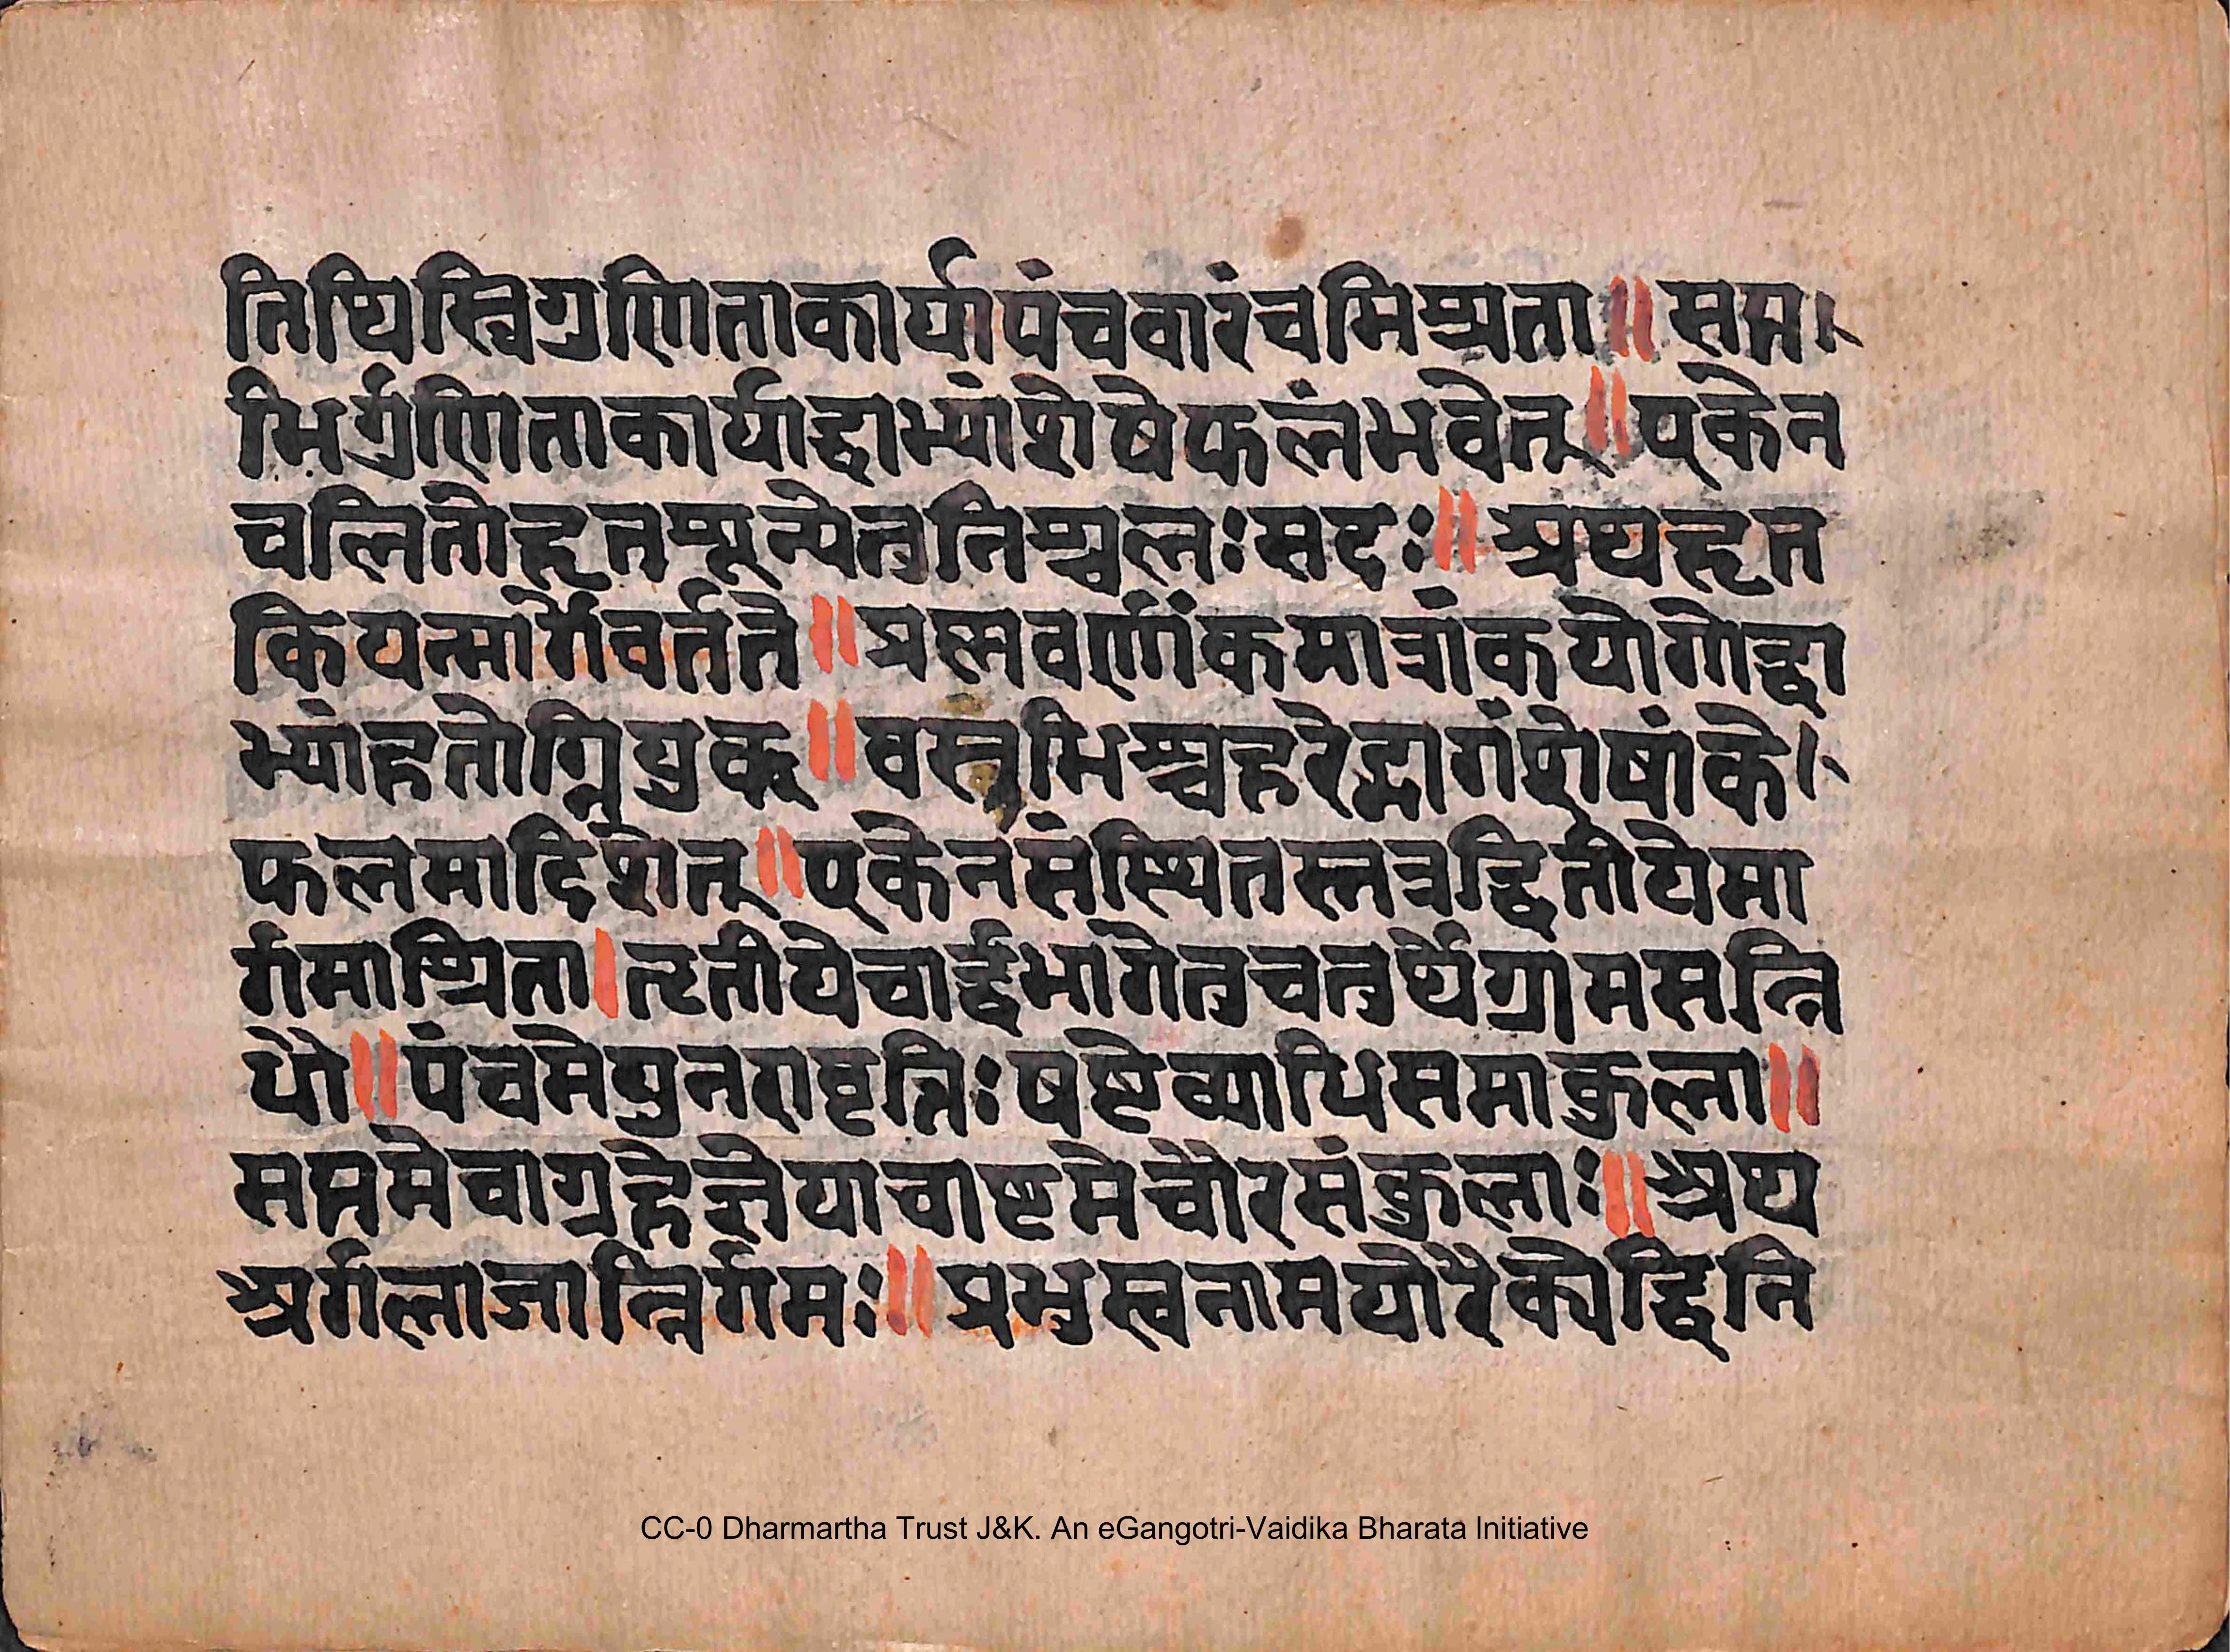 तिथिस्त्रिगुणिताकार्यापंचवारंचमिश्रता॥सप्त।
भिर्गुणिताकार्याद्वाभ्यांशेषेफलंभवेत्॥एकेन
चलितोदूतशून्येतुनिश्चलःसदः॥अथदूत
कियत्मार्गेवर्तते॥प्रश्नवर्णांकमात्रांकयोगोद्वा
भ्यांहतोग्नियुक्॥वस्तुभिश्चहरेद्भागंशेषांके।
फलमादिशेत्॥एकेनसंस्थितस्तत्रद्वितीयेमा
र्गमाश्रिता।तृतीयेचार्द्धभागेतुचतुर्थेग्रामसन्नि
धौ॥पंचमेपुनरावृत्तिःषष्टेव्याधिसमाकुला॥
सप्तमेचागृहेज्ञेयाचाष्टमेचौरसंकुलाः॥अथ
अर्गलाजान्निर्गमः॥प्रभुस्वनामयोरैक्येद्विनि
CC-0 Dharmartha Trust J&K. An eGangotri-Vaidika Bharata Initiative